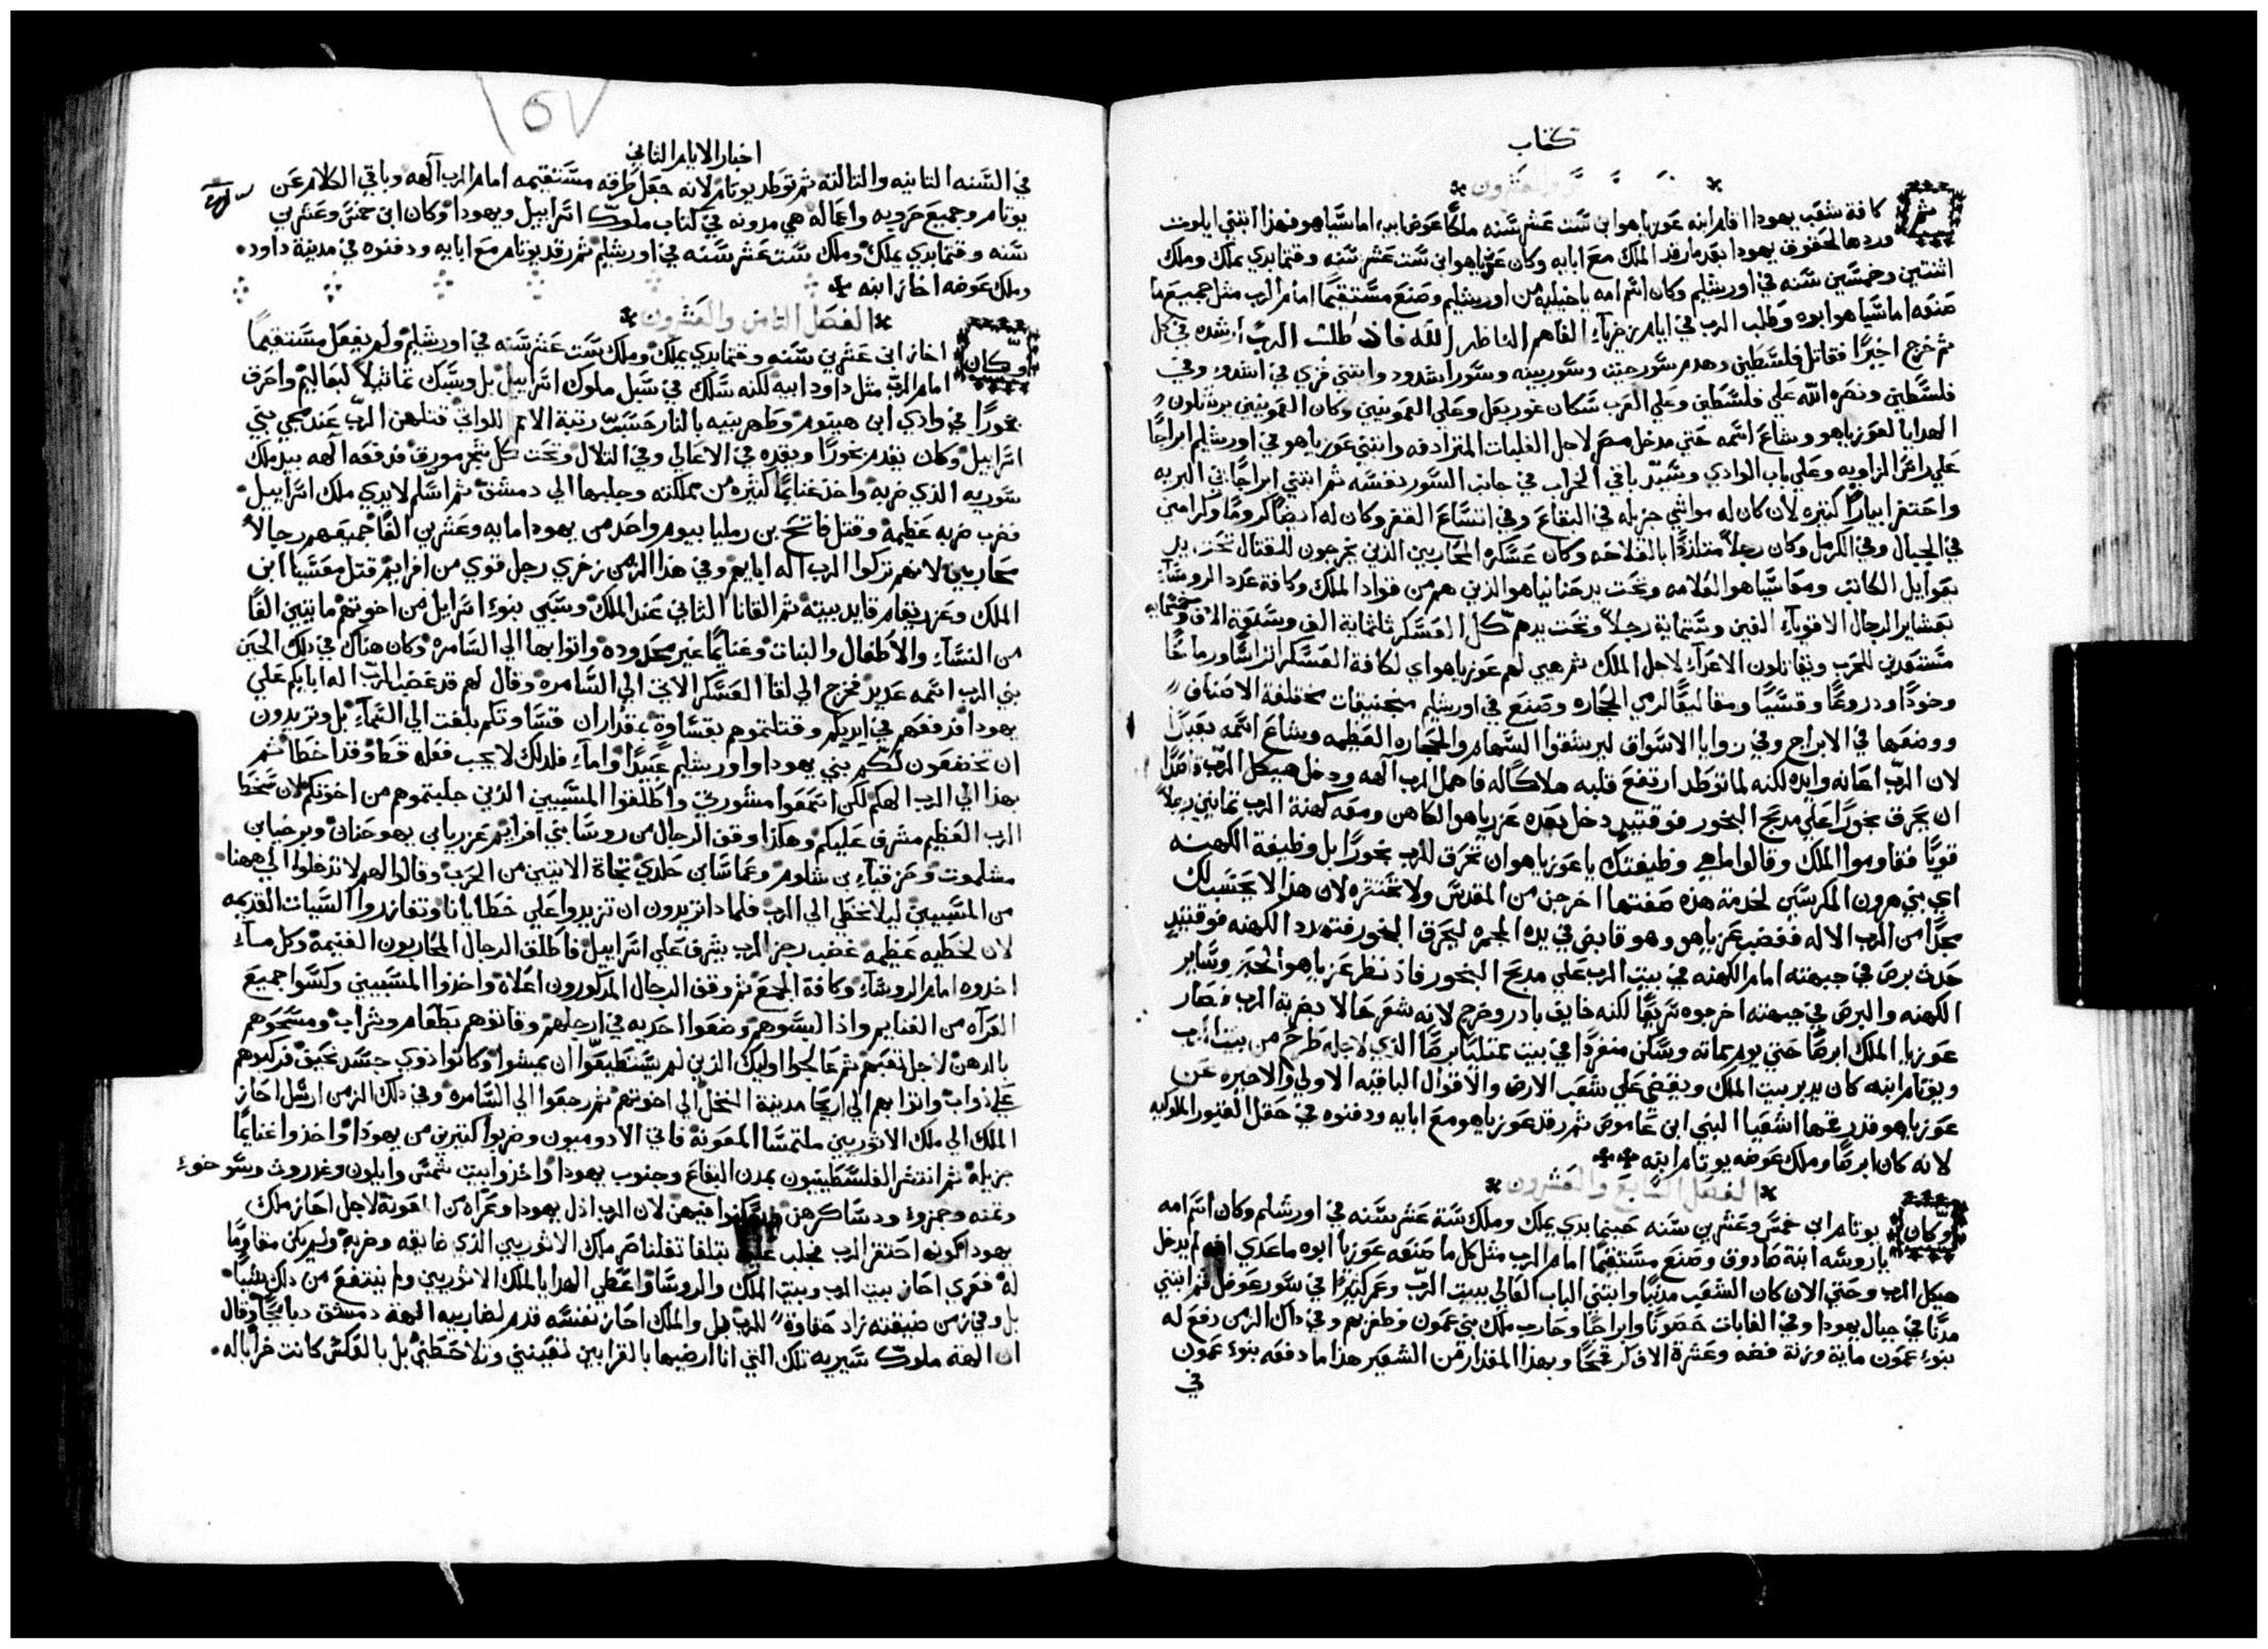 كتاب
والعشرون
ثم كافة شعب يهودا اقام ابنه عوزياهو ابن ست عشر سنه ملكًا عوض ابيه اماسياهو فهذا ابتني ايلوت
وردها لحقوق يهودا بعدما رقد الملك مع ابايه وكان عوزياهو ابن ست عشر سنه وقتما بدي يملك وملك
اثنتين وخمسين سنه في اورشليم وكان اسم امه ياخيليه من اورشليم وصنع مستقيمًا امام الرب مثل جميع ما
صنعه اماسياهو ابوه وطلب الرب في ايام زخرياء الفاهم الناظر الله فاذ طلب الرب ارشده في كل
ثم خرج اخيرًا فقاتل فلسطين وهدم سور جيت وسور يبينه وسور اشدود وابتني قري في اشدود وفي
فلسطين ونصره الله علي فلسطين وعلي العرب سكان غوربعل وعلي العمونيين وكان العمونيين يرسلون
الهدايا لعوزياهو وشاع اسمه حتي مدخل مصر لاجل الغلبات المترادفه وابتني عوزياهو في اورشليم ابراجًا
علي راس الزاويه وعلي باب الوادي وشيد باقي الخراب في جانب السور نفسه ثم ابتني ابراجًا في البريه
واحتفر ابيارًا كثيره لان كان له مواشي جزيله في البقاع وفي اتساع القفر وكان له ايضًا كرومًا وكرامي
في الجبال وفي الكرمل وكان رجلاً متلذذًا بالفلاحه وكان عسكره المحاربين الذين يخرجون للقتال تحت يد
يعوايل الكاتب ومعاسياهو العلامه وتحت يد حنانياهو الذين هم من قواد الملك وكافة عدد الروساء
بعشاير الرجال الاقوياء الفين وستماية رجلاً وتحت يدهم كل العسكر ثلثماية الف وسبعة الاف وخمسمايه
مستعدين للحرب ويقاتلون الاعداء لاجل الملك ثم هيي لهم عوزياهو اي لكافة العسكر اتراسًا ورماحًا
وخودًا ودروعًا وقسيًا ومقاليعًا لرمي الحجاره وصنع في اورشليم منجنيقات مختلفة الاصناف
ووضعها في الابراج وفي زوايا الاسواق ليرشقوا السهام والحجاره العظيمه وشاع اسمه بعيدًا
لان الرب اعانه وايده لكنه لما توطد ارتفع قلبه هلاكًا له فاهمل الرب الهه ودخل هيكل الرب قاصدًا
ان يحرق بخورًا علي مدبح البخور فوقتيدٍ دخل بعده عزرياهو الكاهن ومعه كهنة الرب ثمانين رجلاً
قويًا فقاوموا الملك وقالوا ما هي وظيفتك يا عوزياهو ان تحرق للرب بخورًا بل وظيفة الكهنه
اي بني هرون المكرسين لخدمة هذه صفتها اخرجن من المقدس ولا تحتقره لان هذا لا يحتسب لك
مجدًا من الرب الاله فغضب عوزياهو وهو قابض في يده المجمره ليحرق البخور فتهدد الكهنه فوقتيدٍ
حدث برص في جبهته امام الكهنه في بيت الرب علي مدبح البخور فاذ نظر عزرياهو الحبر وساير
الكهنه والبرص في جبهته اخرجوه سريعًا لكنه خايف بادر وخرج لانه شعر حالا بضربة الرب فصار
عوزيا الملك ابرصًا حتي يوم مماته وسكن منفردًا في بيت ممتليًا برصًا الذي لاجله طرح من بيت الرب
ويوتام ابنه كان يدير بيت الملك ويقضي علي شعب الارض والاقوال الباقيه الاولي والاخيره عن
عوزياهو قد رقمها اشعيا النبي ابن عاموص ثم رقد عوزياهو مع ابايه ودفنوه في حقل القبور الملوكيه
لانه كان ابرصًا وملك عوضه يوتام ابنه
الفصل السابع والعشرون
وكان يوتام ابن خمس وعشرين سنه حينما بدي يملك وملك ستة عشر سنه في اورشليم وكان اسم امه
ياروسه ابنة صادوق وصنع مستقيمًا امام الرب مثل كل ما صنعه عوزيا ابوه ماعدي انه لم يدخل
هيكل الرب وحتي الان كان الشعب مدنبًا وابتني الباب العالي لبيت الرب وعمر كثيرًا في سور عوفل ثم ابتني
مدنًا في جبال يهودا وفي الغابات حصونًا وابراجًا وحارب ملك بني عمون وظفر بهم وفي ذاك الزمن دفع له
بنوء عمون ماية وزنة فضه وعشرة الاف كر قمحًا وبهذا المقدار من الشعير هذا ما دفعه بنوء عمون
في
١٥٧
اخبار الايام الثاني
في السنه الثانيه والثالثه ثم توطد يوتام لانه جعل طرقه مستقيمه امام الرب الهه وباقي الكلام عن
يوتام وجميع حروبه واعماله هي مدونه في كتاب ملوك اسراييل ويهودا وكان ابن خمس وعشرين
سنه وقتما بدي يملك وملك ست عشر سنه في اورشليم ثم رقد يوتام مع ابايه ودفنوه في مدينة داود
وملك عوضه احاز ابنه
الفصل الثامن والعشرون
وكان احاز ابن عشرين سنه وقتما بدي يملك وملك ست عشر سنه في اورشليم ولم يفعل مستقيمًا
امام الرب مثل داود ابيه لكنه سلك في سبل ملوك اسراييل بل وسبك تماثيلاً لبعاليم واحرق
بخورًا في وادي ابن هينوم وطهر بنيه بالنار حسب رتبة الامم اللواتي قتلهن الرب عند مجي بني
اسراييل وكان يقدم بخورًا ويقده في الاعالي وفي التلال وتحت كل شجر مورق فدفعه الهه بيد ملك
سوريه الذي ضربه واخذ غنايمًا كثيره من مملكته وجلبها الي دمشق ثم اسلم لايدي ملك اسراييل
فضرب ضربه عظيمة وقتل فاقح بن رمليا بيوم واحد من يهودا مايه وعشرين الفًا جميعهم رجالاً
محاربين لانهم تركوا الرب اله ابايهم وفي هذا الزمن زخري رجل قوي من افرايم قتل معسيا ابن
الملك وعزريقام قايد بيته ثم القانا الثاني عند الملك وسبي بنوء اسراييل من اخوتهم مايتين الفًا
من النساء والاطفال والبنات وغنايمًا غير محدوده واتوا بها الي السامره وكان هناك في ذلك الحين
نبي الرب اسمه عديد فخرج الي لقا العسكر الاتي الي السامره وقال لهم قد غضب الرب اله ابايكم علي
يهودا فدفعهم في ايديكم وقتلتموهم بقساوة بمقدار ان قساوتكم بلغت الي السماء بل وتريدون
ان تخضعون لكم بني يهودا واورشليم عبيدًا واماء فلذلك لا يجب فعله قط وقد اخطاتم
بهذا الي الرب الهكم لكن اسمعوا مشورتي واطلقوا المسبيين الذين جلبتموهم من اخوتكم لان سخط
الرب العظيم مشرف عليكم وهكذا وقف الرجال من روسا بني افرايم عزريا بن يهوحنان وبرخيا بن
مشلموت وحزقياء بن شلوم وعماسا بن حدلي تجاة الاتيين من الحرب وقالوا لهم لا تدخلوا الي ههنا
من المسبيين ليلا نخطي الي الرب فلماذا تريدون ان تزيدوا علي خطايانا وتفازدوا السيات القديمه
لان لخطيه عظيمه غضب رجز الرب يشرف علي اسراييل فاطلق الرجال المحاربون الغنيمة وكل ما
اخذوه امام الروساء وكافة الجمع ثم وقف الرجال المذكورون اعلاه واخذوا المسبيين وكسوا جميع
العراه من الغنايم واذ البسوهم وضعوا احديه في ارجلهم وقاتوهم بطعام وشراب ومسحوهم
بالدهن لاجل تعبهم ثم عالجوا اوليك الذين لم يستطيعوا ان يمشوا وكانوا ذوي جسد نحيف فركبوهم
علي دواب واتوا بهم الي اريحا مدينة النخل الي اخوتهم ثم رجعوا الي السامره وفي ذلك الزمن ارسل احاز
الملك الي ملك الاثوريين ملتمسًا المعونة فاتي الادوميون وضربوا كثيرين من يهودا واخذوا غنايمًا
جزيلة ثم انتشر الفلسطينيون بمدن البقاع وجنوب يهودا واخذوا بيت شمس وايلون وغدروث وسوخوء
وثمنه وجمزوء ودساكرهن وسكنوا فيهن لان الرب اذل يهودا وعراه من المعونة لاجل احاز ملك
يهودا لكونه احتقر الرب فجلب عليه تيلغا تفلناصر ملك الاثوريين الذي ضايقه وضربه ولم يكن مقاومًا
له فعري احاز بيت الرب وبيت الملك والروسا واعطي الهدايا لملك الاثوريين ولم ينتفع من ذلك شييًا
بل وفي زمن ضيقته زاد حقارة للرب بل والملك احاز نفسه قدم لضاربيه الهة دمشق دبايحًا وقال
ان الهة ملوك سيريه تلك التي انا ارضيها بالقرابين لتعينني وتلاحظني بل بالعكس كانت خرابًا له